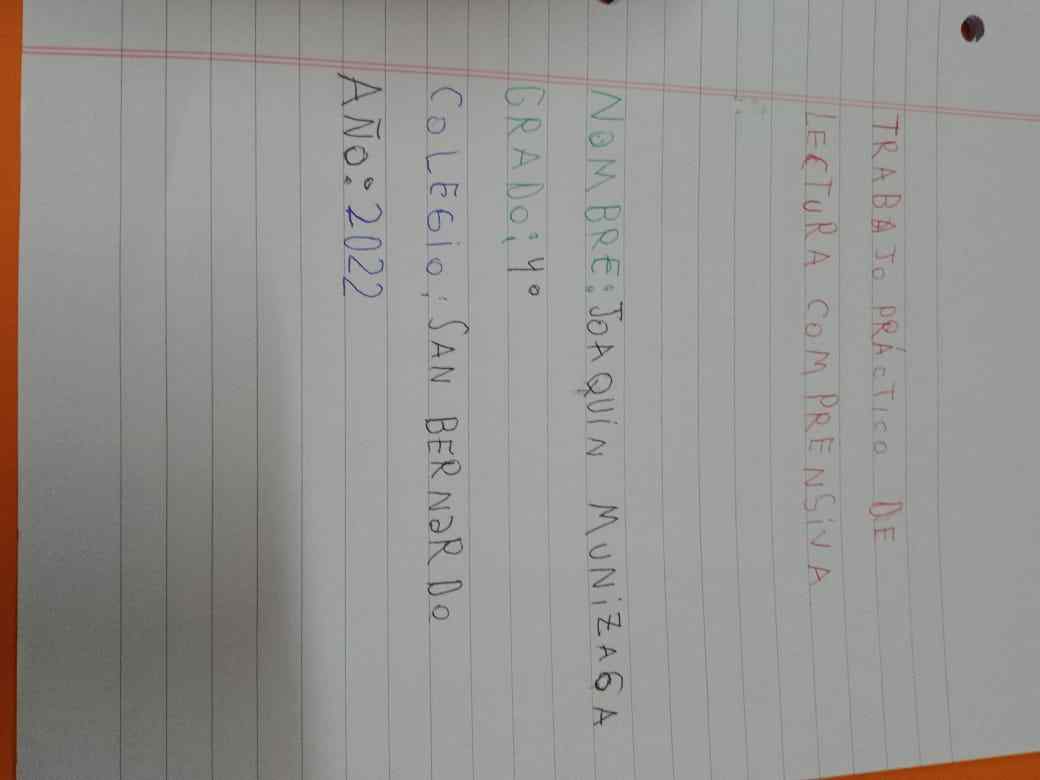 TRABAJO PRÁCTICO DE
LECTURA COMPRENSIVA
NOMBRE: JOAQUIN MUNIZAGA
GRADO: 4°
COLEGIO: SAN BERNARDO
AÑO: 2022